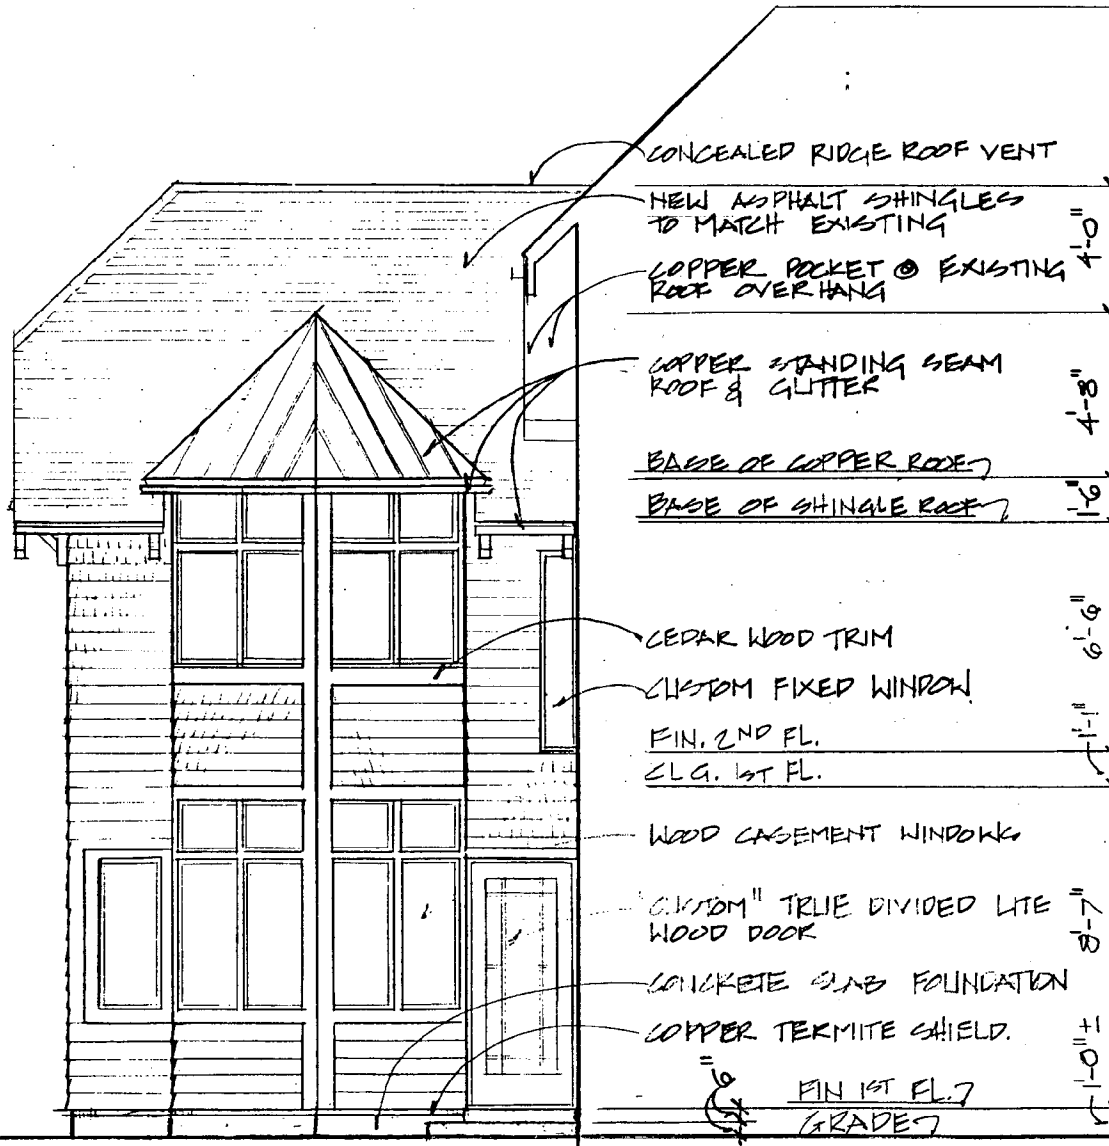 CONCEALED RIDGE ROOF VENT
NEW ASPHALT SHINGLES
TO MATCH EXISTING
4'-0"
COPPER POCKET @ EXISTING
ROOF OVERHANG
COPPER STANDING SEAM
ROOF & GUTTER
4'-8"
BASE OF COPPER ROOF
1'-6"
BASE OF SHINGLE ROOF
6'-6"
CEDAR WOOD TRIM
CUSTOM FIXED WINDOW
1'-1"
FIN. 2ND FL.
CLG. 1ST FL.
WOOD CASEMENT WINDOWS
"CUSTOM" TRUE DIVIDED LITE
WOOD DOOR
8'-7"
CONCRETE SLAB FOUNDATION
COPPER TERMITE SHIELD.
1'-0"±
6"
FIN 1ST FL.
GRADE